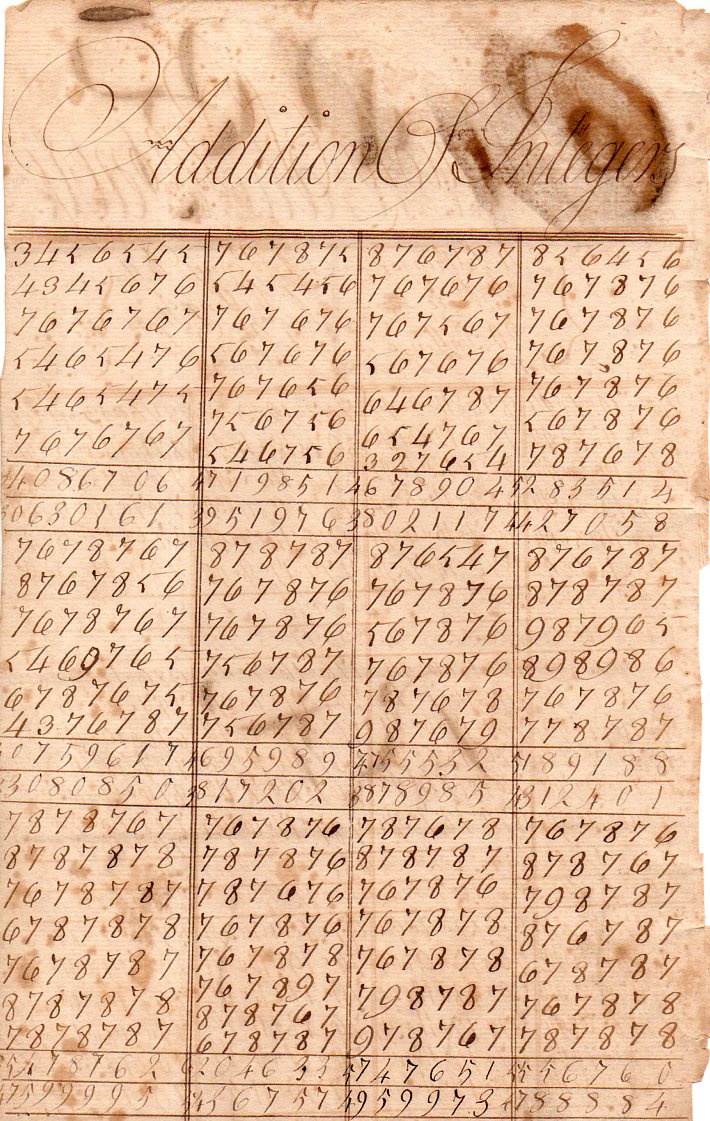 Addition Of Integers
3456545 767875 876787 856456
4345676 545456 767676 767876
7676767 767676 767567 767876
5465476 567676 567676 767876
5465475 767656 646787 767876
7676767 756756 654767 567876
546756 327654 787678
34086706 4719851 4678904 5283514
30630161 3951976 3802117 4427058
7678767 878787 876547 876787
8767856 767876 767876 878787
7678767 767876 567876 987965
5469765 756787 767876 898986
6787675 767876 787678 767876
4376787 756787 987679 778787
40759617 4695989 4755532 5189188
33080850 3817202 3878985 4312401
7878767 767876 787678 767876
8787878 787876 878787 878767
7678787 787676 767876 798787
6787878 767876 767878 876787
7678787 767878 767878 678787
8787878 767897 798787 767878
7878787 878767 978767 787878
678787
55478762 6204633 5747651 5556760
47599995 5436757 4959973 4788884